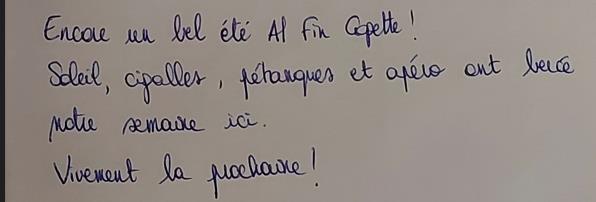 Encore un bel été Al Fin Capette !
Soleil, cigalles, pétanques et apéro ont bercé
notre semaine ici.
Vivement la prochaine !